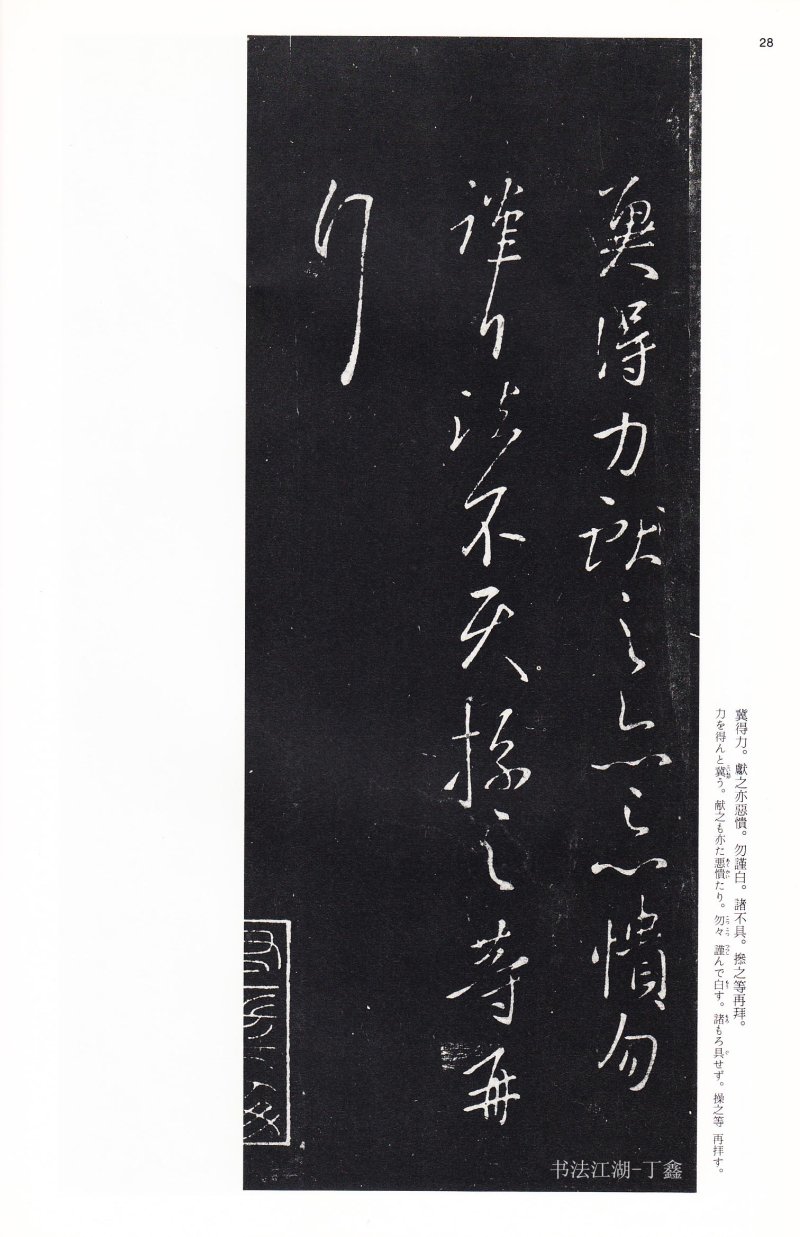 28
冀得力獻之亦惡憒勿
謹白諸不具操之等再
拜
冀得力。獻之亦惡憒。勿謹白。諸不具。操之等再拜。
力を得んと冀う。献之も亦た悪憒たり。勿々 謹んで白す。諸もろ具せず。操之等 再拝す。
书法江湖-丁鑫